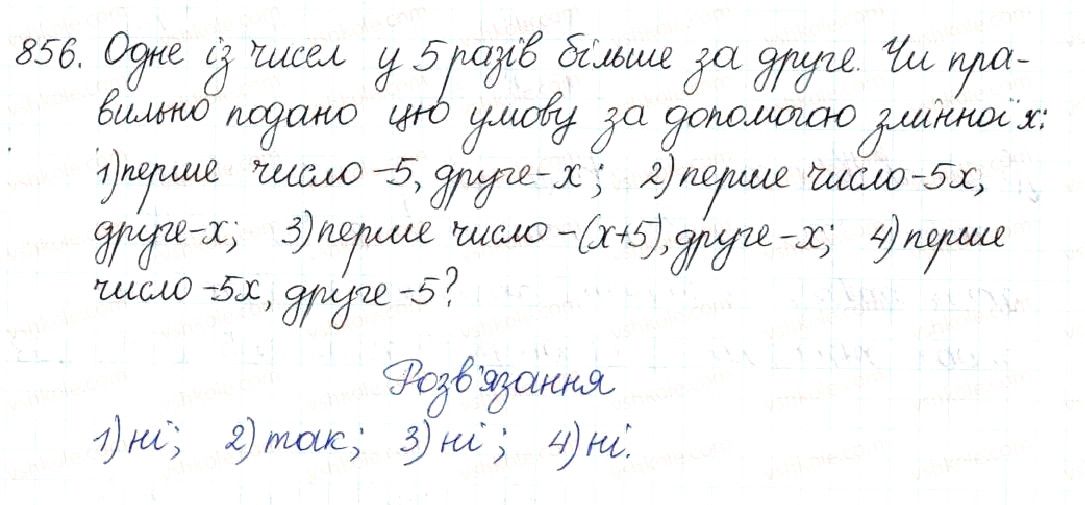 856. Одне із чисел у 5 разів більше за друге. Чи пра-
вильно подано цю умову за допомогою змінної х:
1) перше число -5, друге - х; 2) перше число -5х,
друге - х; 3) перше число - (х+5), друге - х; 4) перше
число -5х, друге -5?
Розв'язання
1) ні; 2) так; 3) ні; 4) ні.